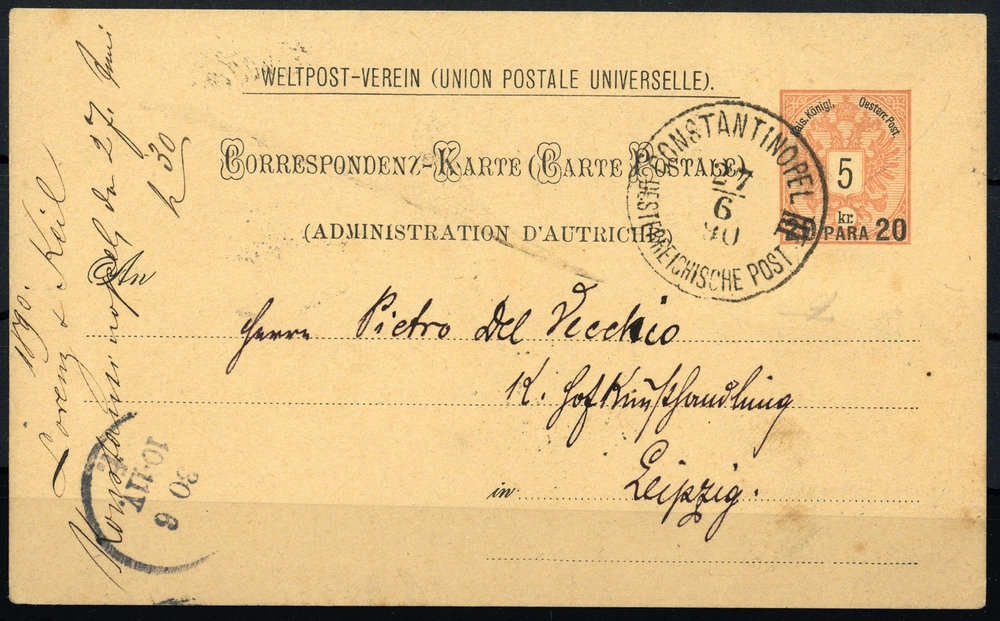 WELTPOST-VEREIN (UNION POSTALE UNIVERSELLE).
CORRESPONDENZ-KARTE (CARTE POSTALE)
(ADMINISTRATION D'AUTRICHE)
Kais. Königl. Oesterr. Post.
5
kr.
20 PARA 20
CONSTANTINOPEL
27
6
90
OESTERREICHISCHE POST
An
Herrn Pietro Del Vecchio
K. Hofkunsthandlung
in Leipzig.
Lorenz & Keil
1890.
Konstantinopel, den 27. Juni
30
6
10-11V